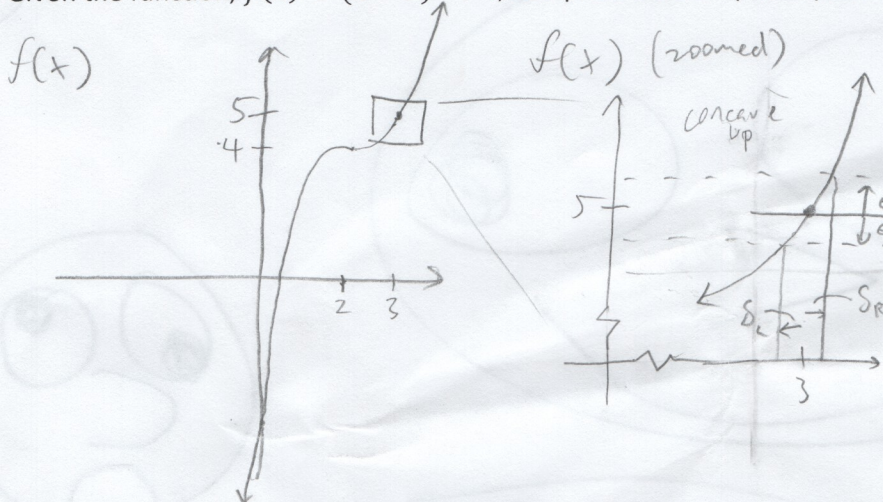 f(x)
5
4
2
3
f(x) (zoomed)
concave
up
5
ε
ε
δL
δR
3